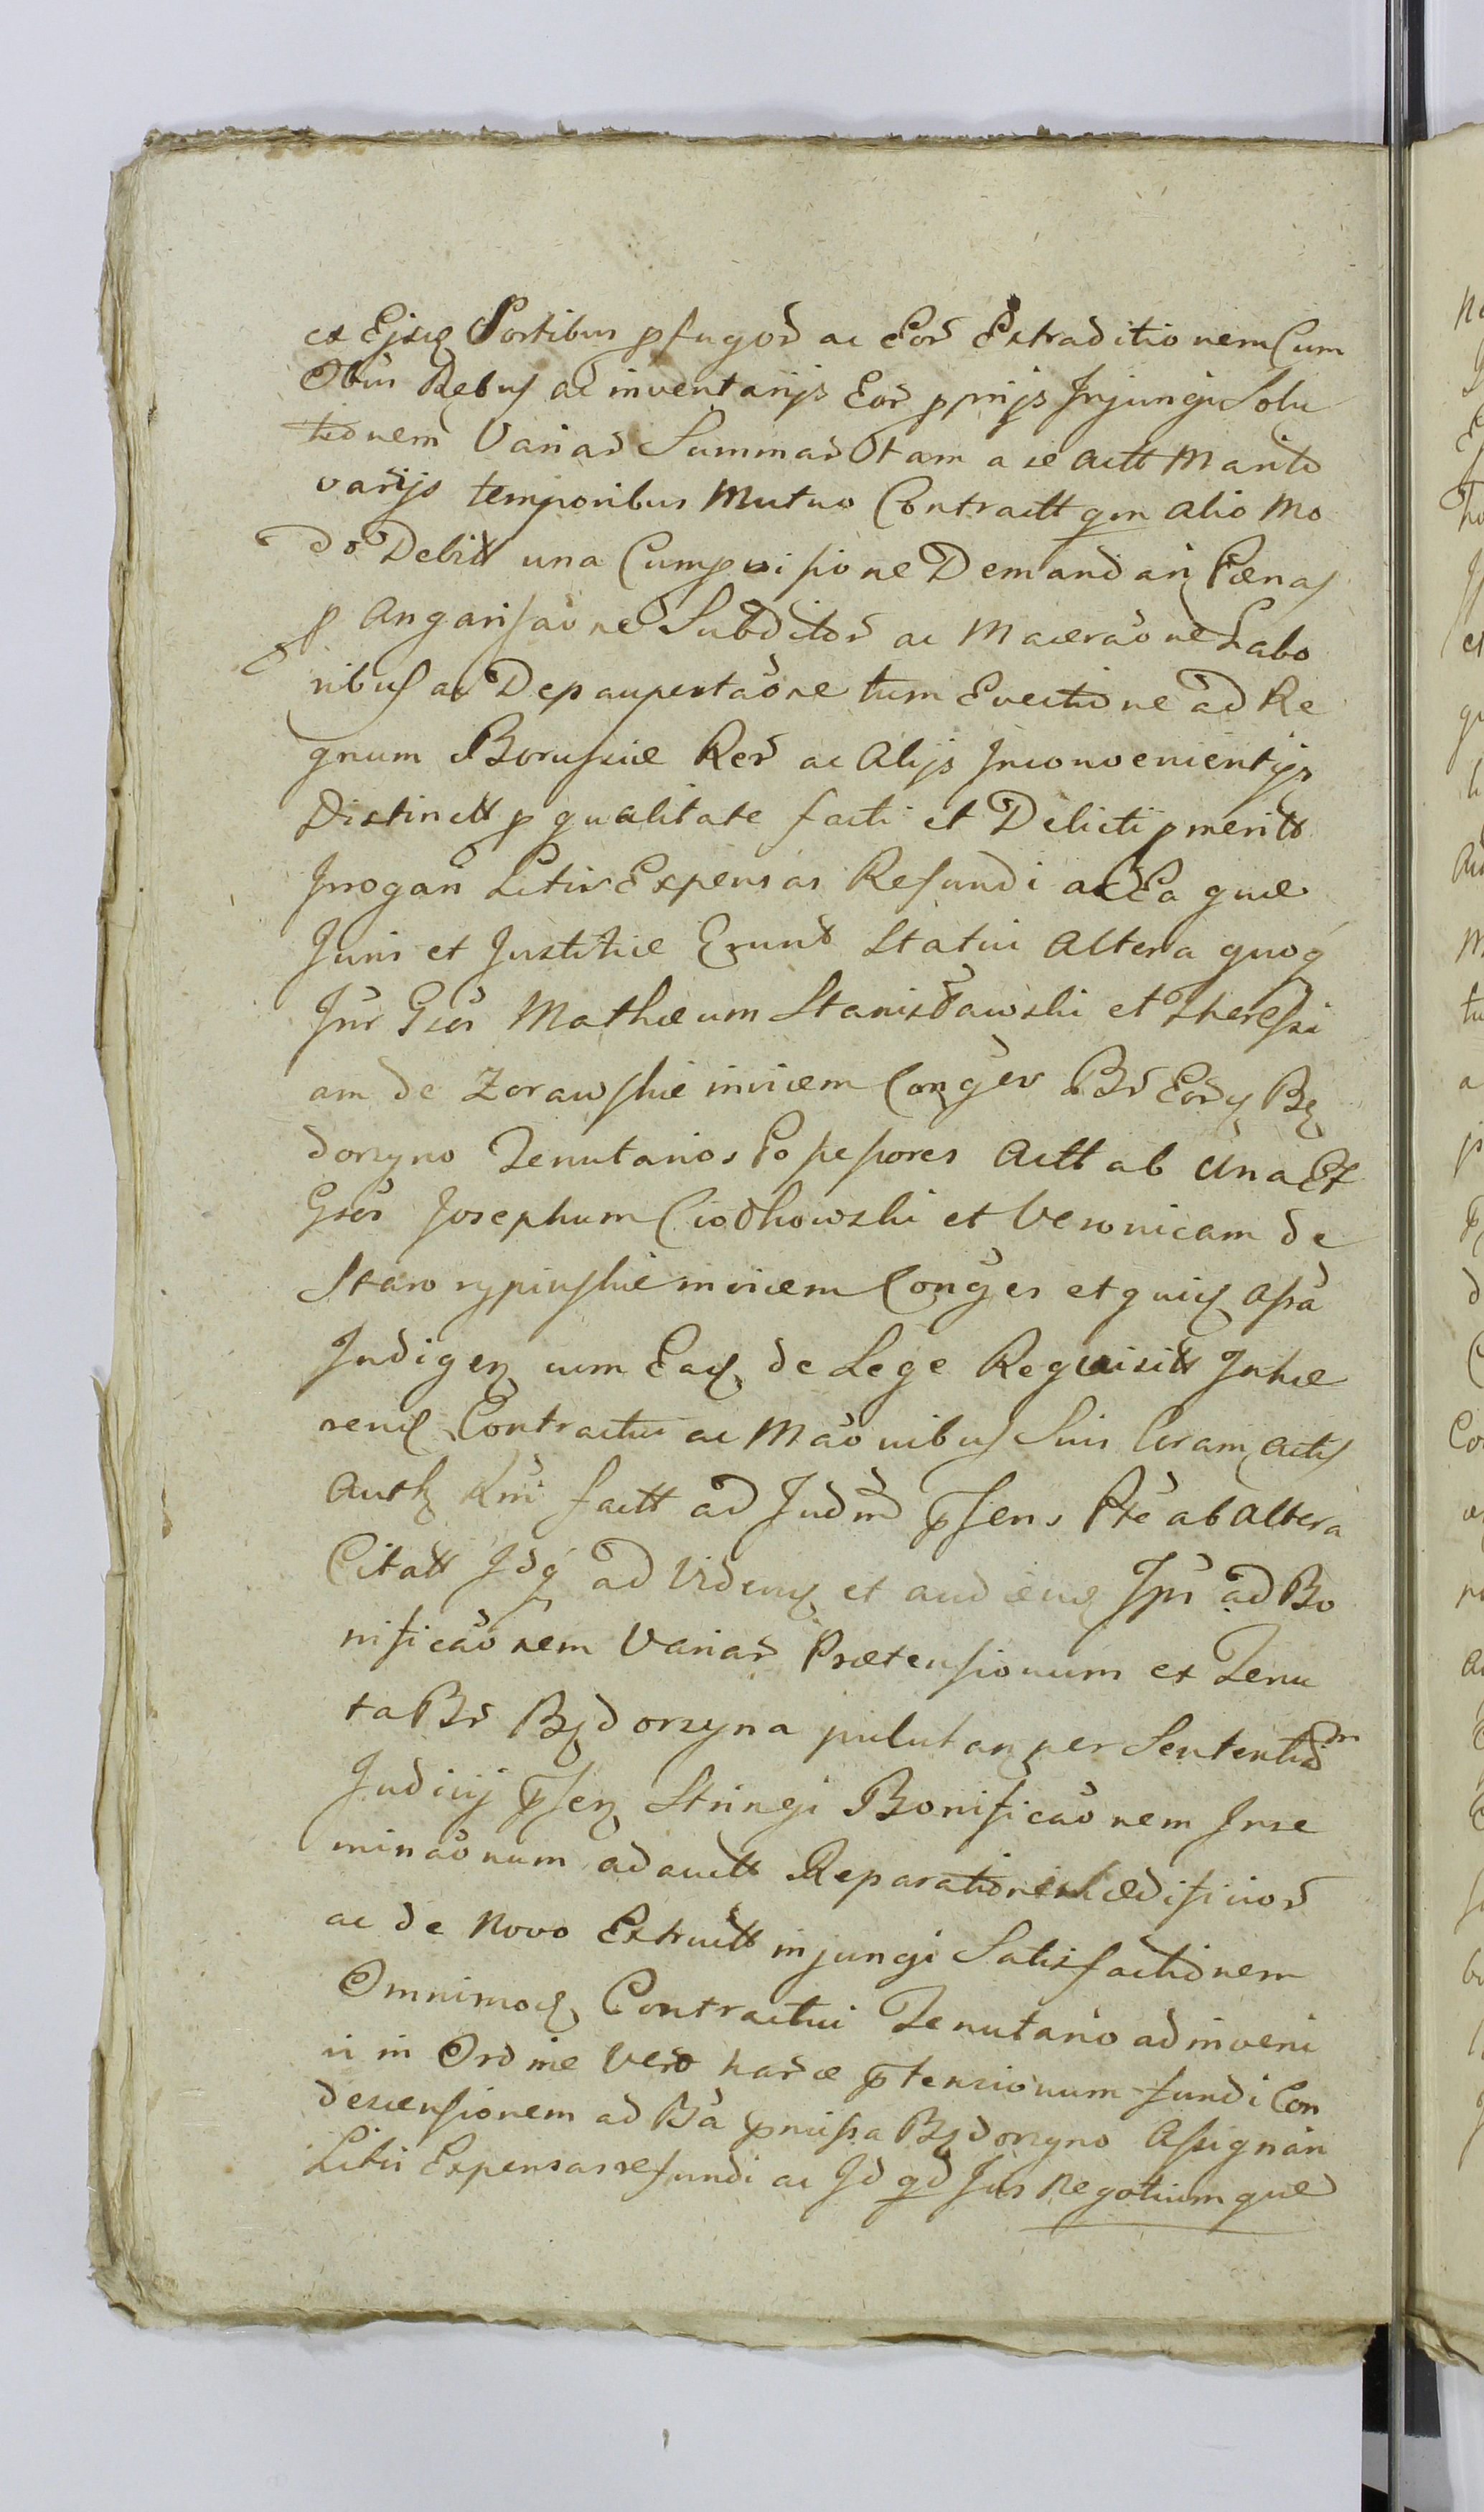 ex Ejsq Sortibus pfugor ac Eor Extraditionem Cum
Obus Rebus ac inventarijs Eor pprijs Injungi Solu
tionem Variar Summar tam a se actt Marito
varijs temporibus Mutuo Contractt qm alio Mo
do Debitt una Cum Demandari Pænas
p Angarisaone Subditor ac Maceraone Labo
ribus ac Depaupertaone tum Evectione ad Re
gnum Borussiæ Rer ac Alijs Inconvenientijs
Distinctt p qualitate facti et Delicti pmeritt
Irrogari Litis Expensas Refundi ac Ea quæ
Juris et Justitiæ Erunt Statui Altera quoq
Inr Gsos Mathæum Stanisławski et Theressi
am de Zorawskie invicem Conges Br Eorq Bę
dorzyno Tenutarios Possessores Actt ab Una Et
Gsos Josephum Ciodkowski et Veronicam de
Starorypinskie invicem Conges et quic assa
Indigen cum Eaq de Lege Requisitt Inhæ
renq Contractui ac Maonibus Suis Coram actis
Auth Kmi factt ad Judm psens Pte ab Altera
Citatt Idq ad Videnq et audienq Ipsi ad Bo
nificaonem Variar Prætensionum ex Tenu
ta Br Będorzyna pulutan per Sententiam
Judicij psen Stringi Bonificaonem Inse
minaonum adauctt Reparationem ædificior
ac de Novo Extructt injungi Satisfactionem
Omnimoq Contractui Tenutario adinveni
ri in Ordine Vero harce ptensionum fundi Con
descensionem ad Ba pmissa Będorzyno Assignari
Litis Expensas refundi ac Id qd Jus Negotiumque